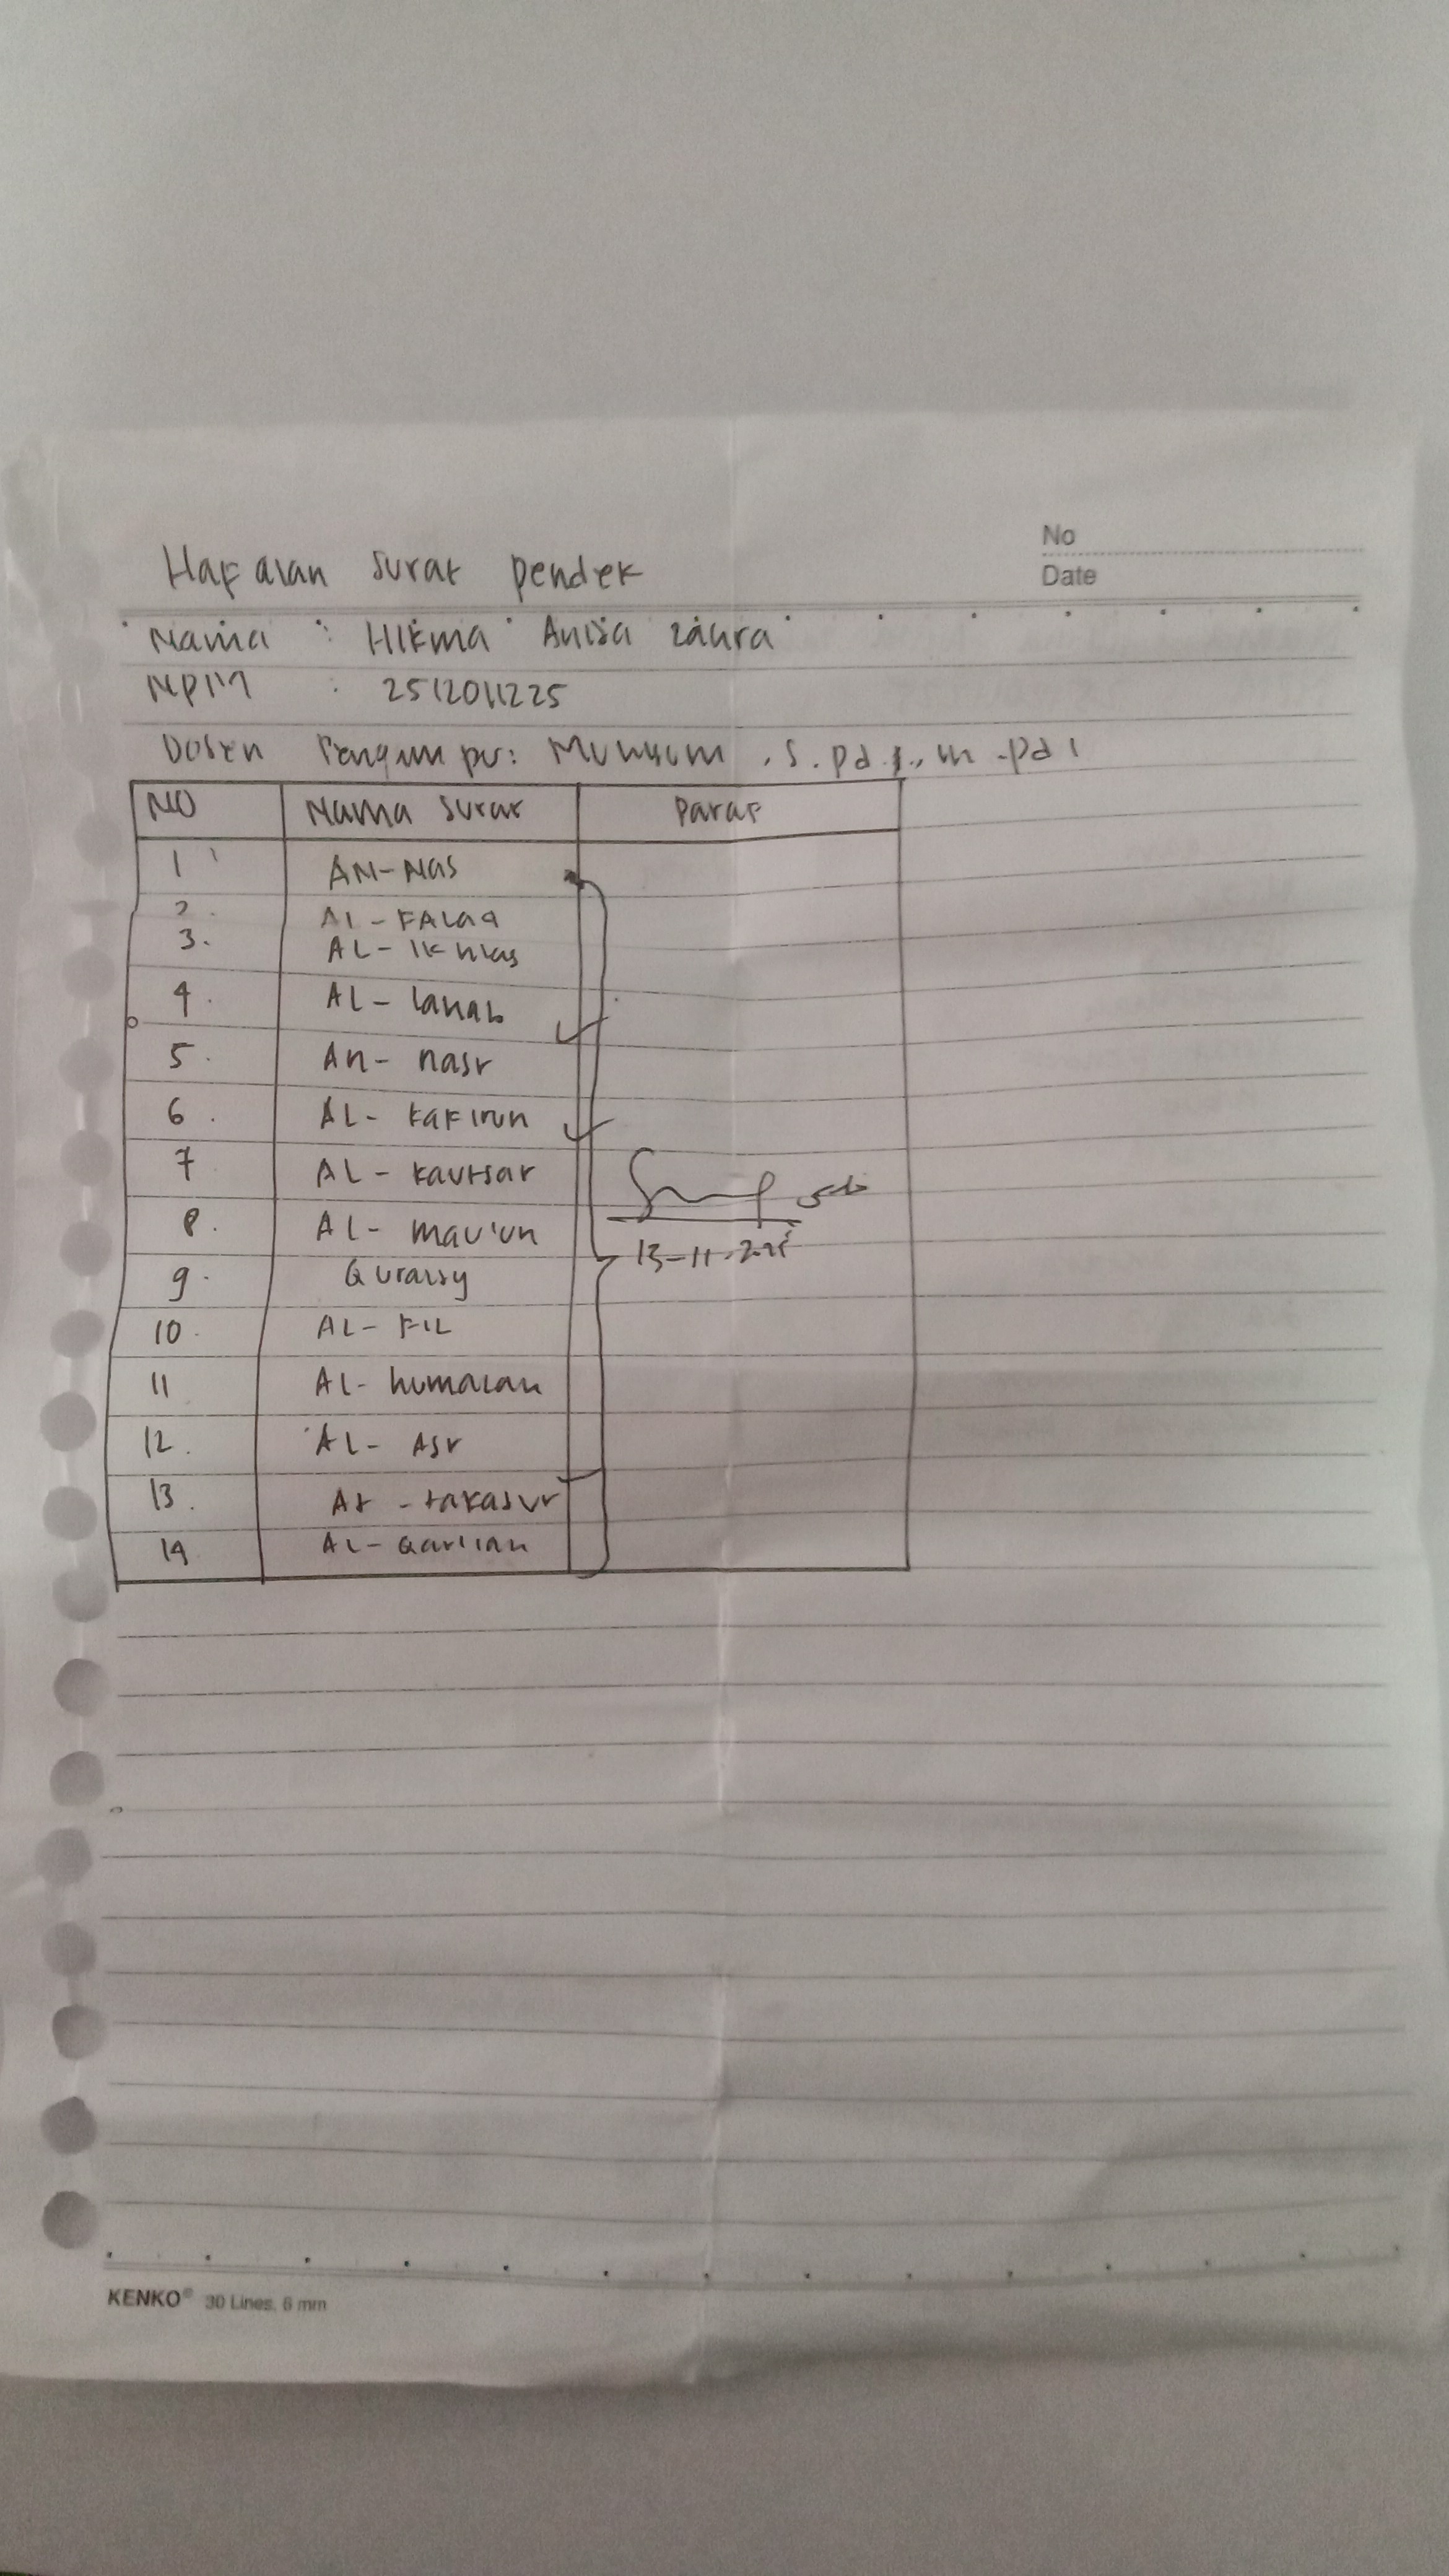 No
Date
Hafalan surat pendek
Nama : Hikma Anisa zahra
NPM : 2512011225
Dosen Pengumpu: , S.pd.I., m.pd I
NO Nama surat Paraf
1 AN-NAS
2. AL-FALAQ
3. AL-Ikhlas
4. AL-lahab
5. An-nasr
6. AL-kafirun
7 AL-kautsar
8. AL-mau'un
13-11-2025
9. Quraisy
10. AL-FIL
11 AL-humazah
12. AL-ASr
13. At-takasur
14 AL-Qariiah
KENKO® 30 Lines, 6 mm